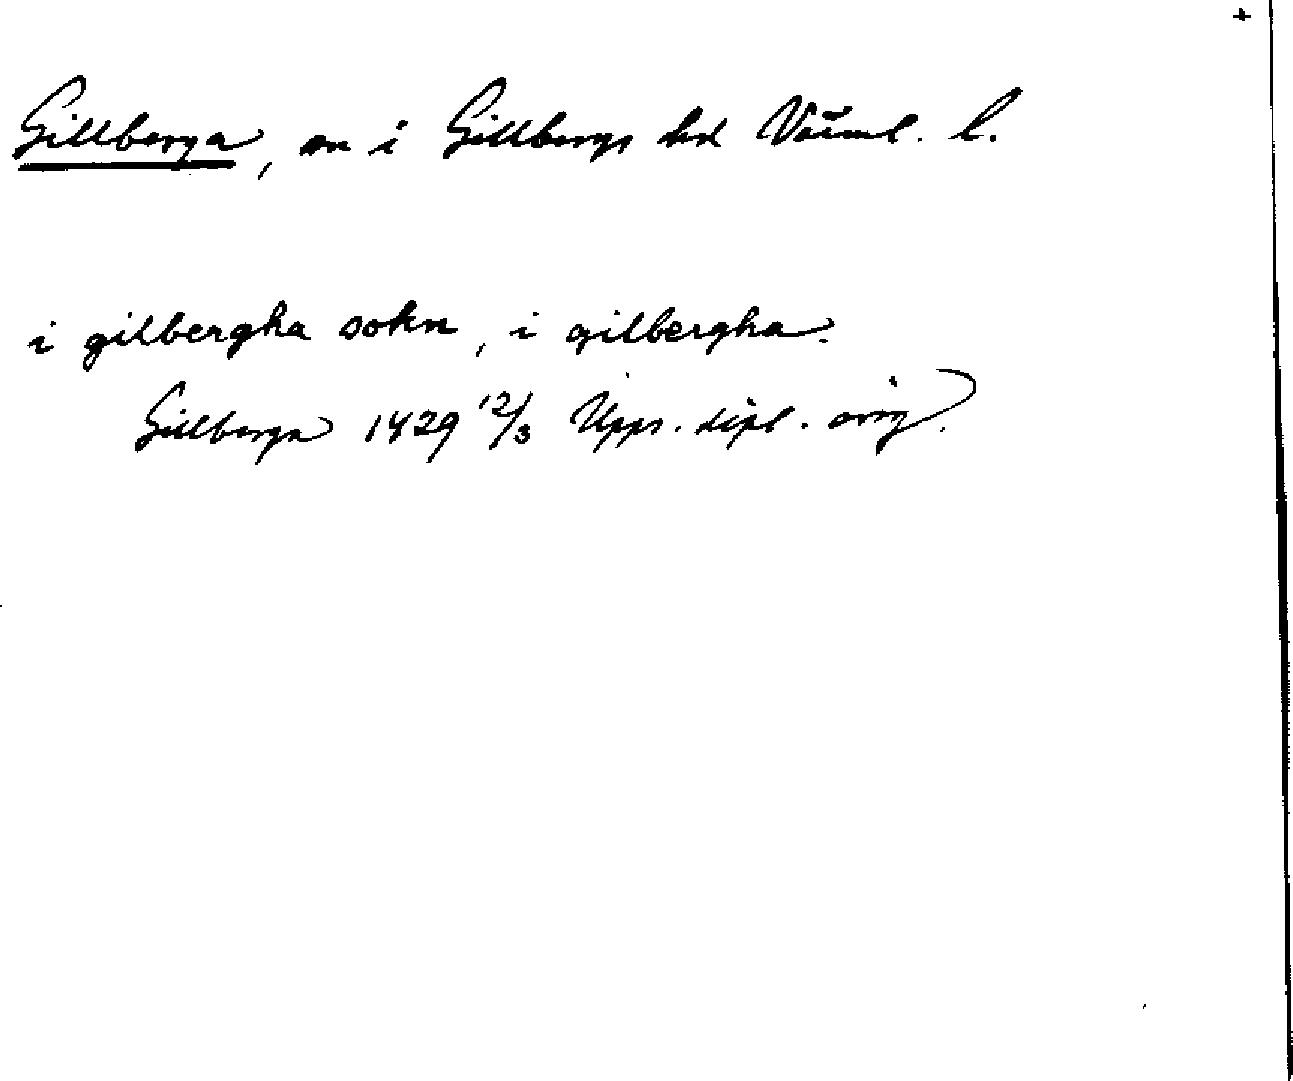 +
Gillberga, sn i Gillbergs hd Värml. l.
i gilbergha sokn, i gilbergha.
Gillberga 1429 12/3 Upps. dipl. orig.